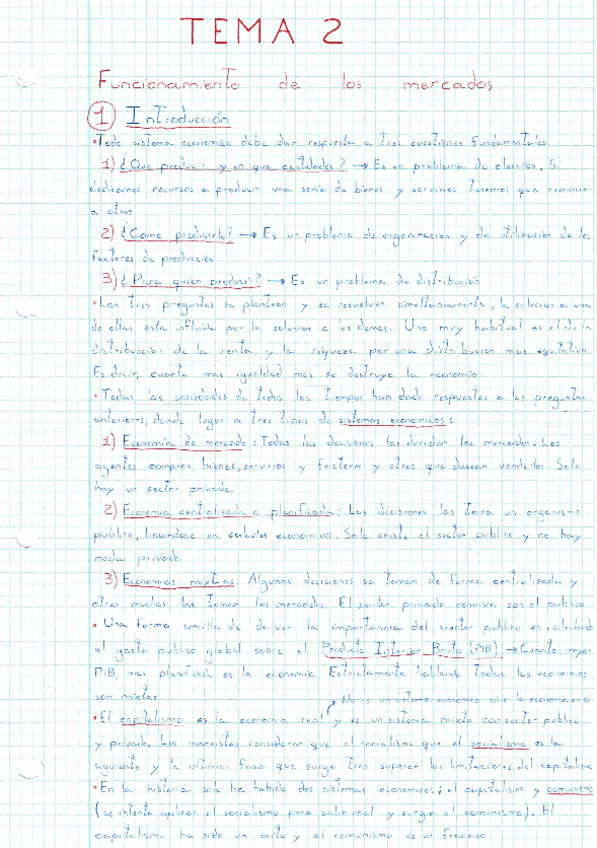 TEMA 2
Funcionamiento de los mercados
1 Introducción
• Todo sistema economico debe dar respuesta a tres cuestiones fundamentales
1) ¿Que producir y en que cantidades? → Es un problema de eleccion. Si
dedicamos recursos a producir una serie de bienes y servicios tenemos que renunciar
a otros
2) ¿Como producirlo? → Es un problema de organizacion y de utilizacion de los
factores de produccion
3) ¿Para quien producir? → Es un problema de distribución
• Las tres preguntas se plantean y se resuelven simultaneamente, la solucion a una
de ellas esta influida por la solucion a las demas. Uno muy habitual es el de la
distribucion de la renta y la riqueza por una distribucion mas equitativa
Es decir, cuanta mas igualdad mas se destruye la economia.
• Todas las sociedades de todos los tiempos han dado respuestas a las preguntas
anteriores, dando lugar a tres tipos de sistemas economicos:
1) Economía de mercado: Todas las decisiones las decidan los mercados. Los
agentes compran bienes, servicios y factores y otros que desean venderlos. Solo
hay un sector privado.
2) Economia centralizada o planificada: Las decisiones las toma un organismo
publico, basandose en calculos economicos. Solo existe el sector publico y no hay
nada privado
3) Economias mixtas Algunas decisiones se toman de forma centralizada y
otras muchas las toman los mercados. El sector privado convive con el publico
• Una forma sencilla de de ver la importancia del sector publico es calculando
el gasto publico global sobre el Producto Interior Bruto (PIB) → Cuanto mayor
PIB, mas planificada es la economia. Estrictamente hablando todas las economias
son mixtas
No es un sistema economico sino la economia en si
• El capitalismo es la economia real y es un sistema mixto con sector publico
y privado. Los marxistas consideran que el socialismo que el socialismo es la
siguiente y la ultima fase que surge tras superar las limitaciones del capitalismo
• En la historia solo ha habido dos sistemas economicos; el capitalismo y comunismo
(se intento aplicar el socialismo pero salio mal y surgio el comunismo). El
capitalismo ha sido un exito y el comunismo es un fracaso